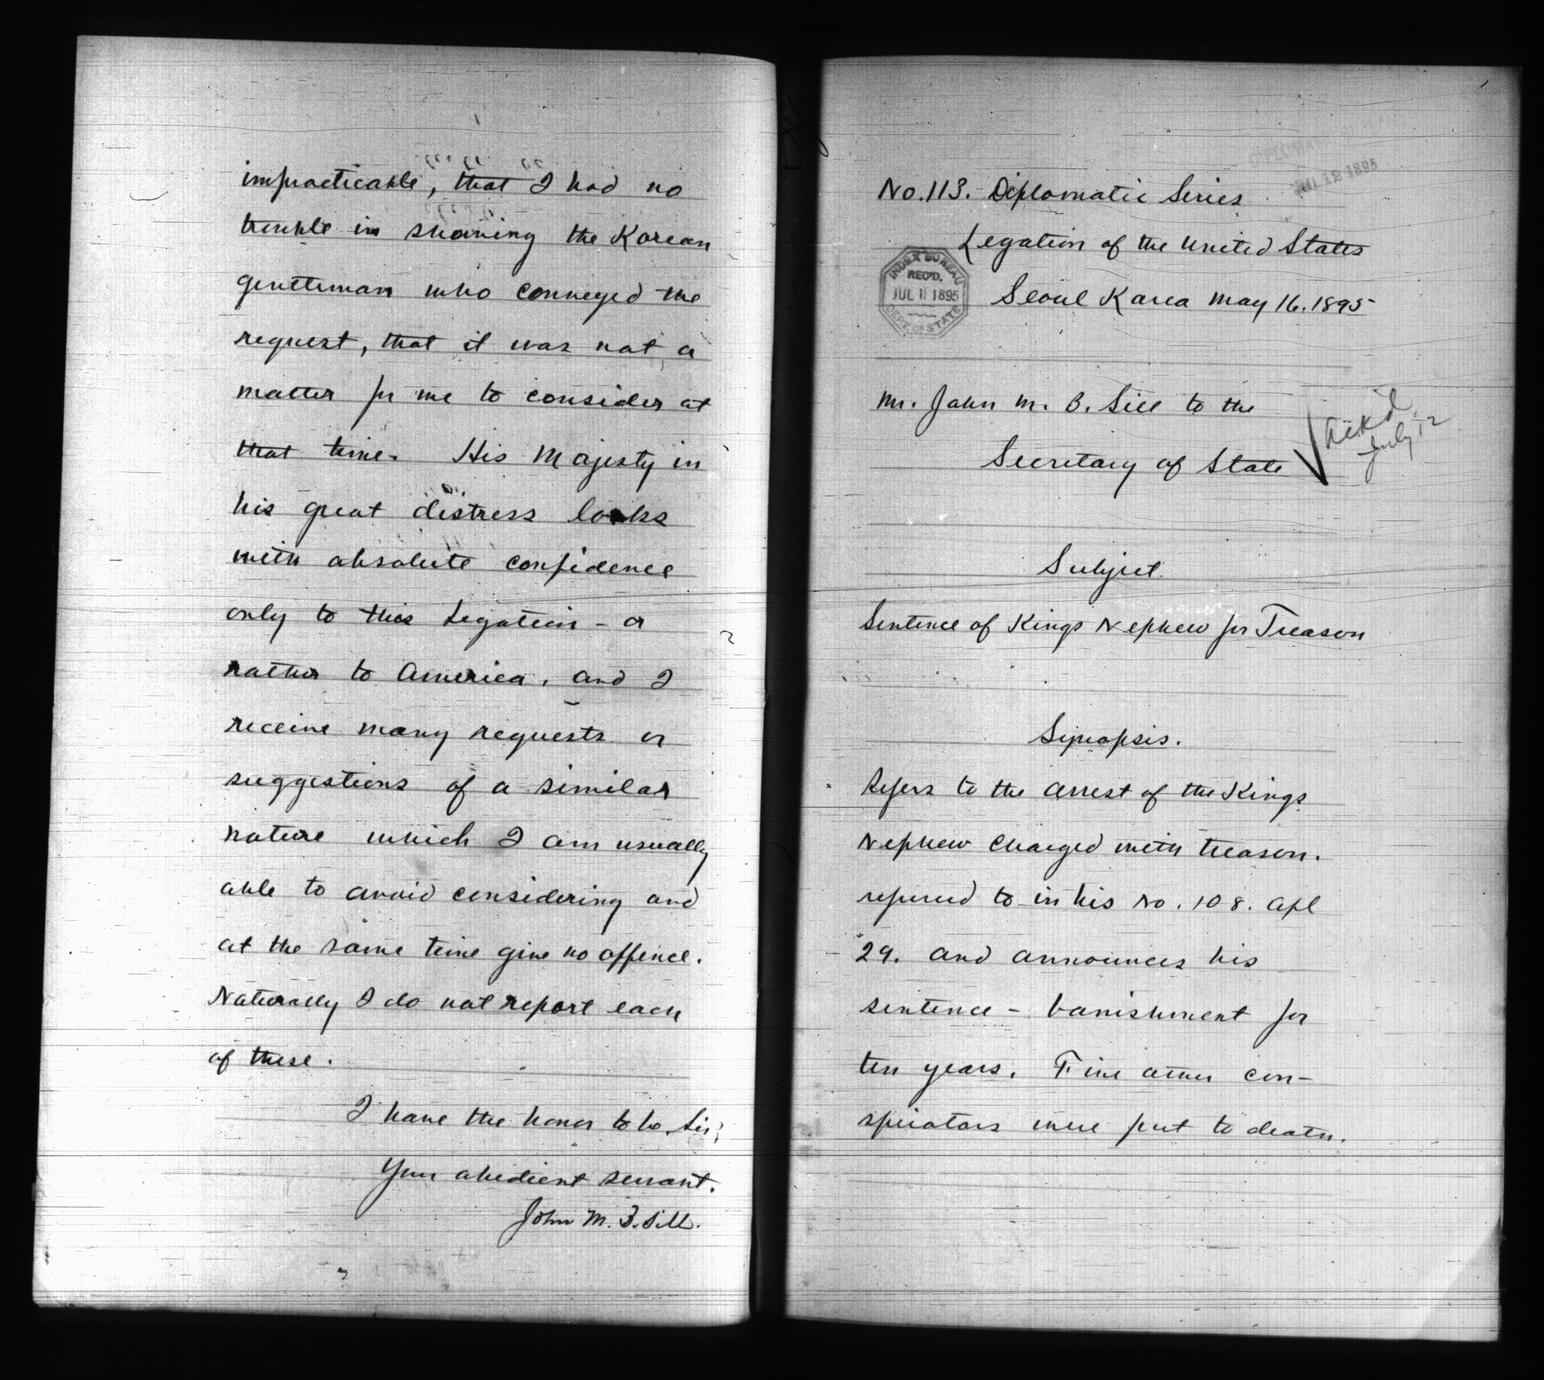 impracticable, that I had no
trouble in showing the Korean
gentleman who conveyed the
request, that it was not a
matter for me to consider at
that time. His Majesty in
his great distress looks
with absolute confidence
only to this Legation - or
rather to America, and I
receive many requests or
suggestions of a similar
nature which I am usually
able to avoid considering and
at the same time give no offence.
Naturally I do not report each
of these.
I have the honor to be, Sir,
Your obedient servant.
John M. B. Sill.
JUL 12 1895
No. 113. Diplomatic Series
Legation of the United States
INDEX BUREAU
REC'D.
JUL 11 1895
DEPT. OF STATE
Seoul Korea May 16. 1895
Mr. John M. B. Sill to the
Secretary of State
Ack'd
July 12
Subject.
Sentence of Kings Nephew for Treason
Synopsis.
Refers to the arrest of the Kings
Nephew Charged with treason.
referred to in his No. 108. Apl
29. and announces his
sentence - banishment for
ten years. Five other con-
spirators were put to death.